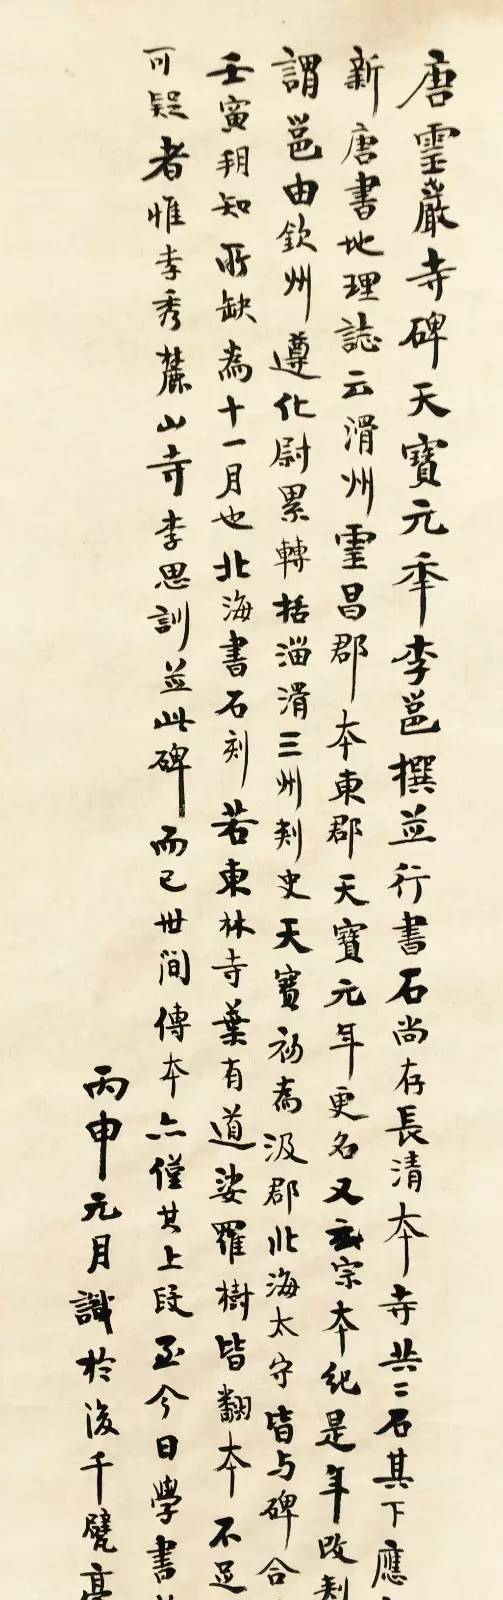 唐靈巖寺碑天寶元年李邕撰並行書石尚存長清本寺共二石其下應
新唐書地理誌云滑州靈昌郡本東郡天寶元年更名又玄宗本紀是年改刾
謂邕由欽州遵化尉累轉括淄滑三州刾史天寶初為汲郡北海太守皆与碑合
壬寅朔知所缺為十一月也北海書石刻若東林寺葉有道娑羅樹皆翻本不足
可疑者惟李秀麓山寺李思訓並此碑而已世間傳本亦僅其上段至今日學書
丙申元月識於後千甓亭